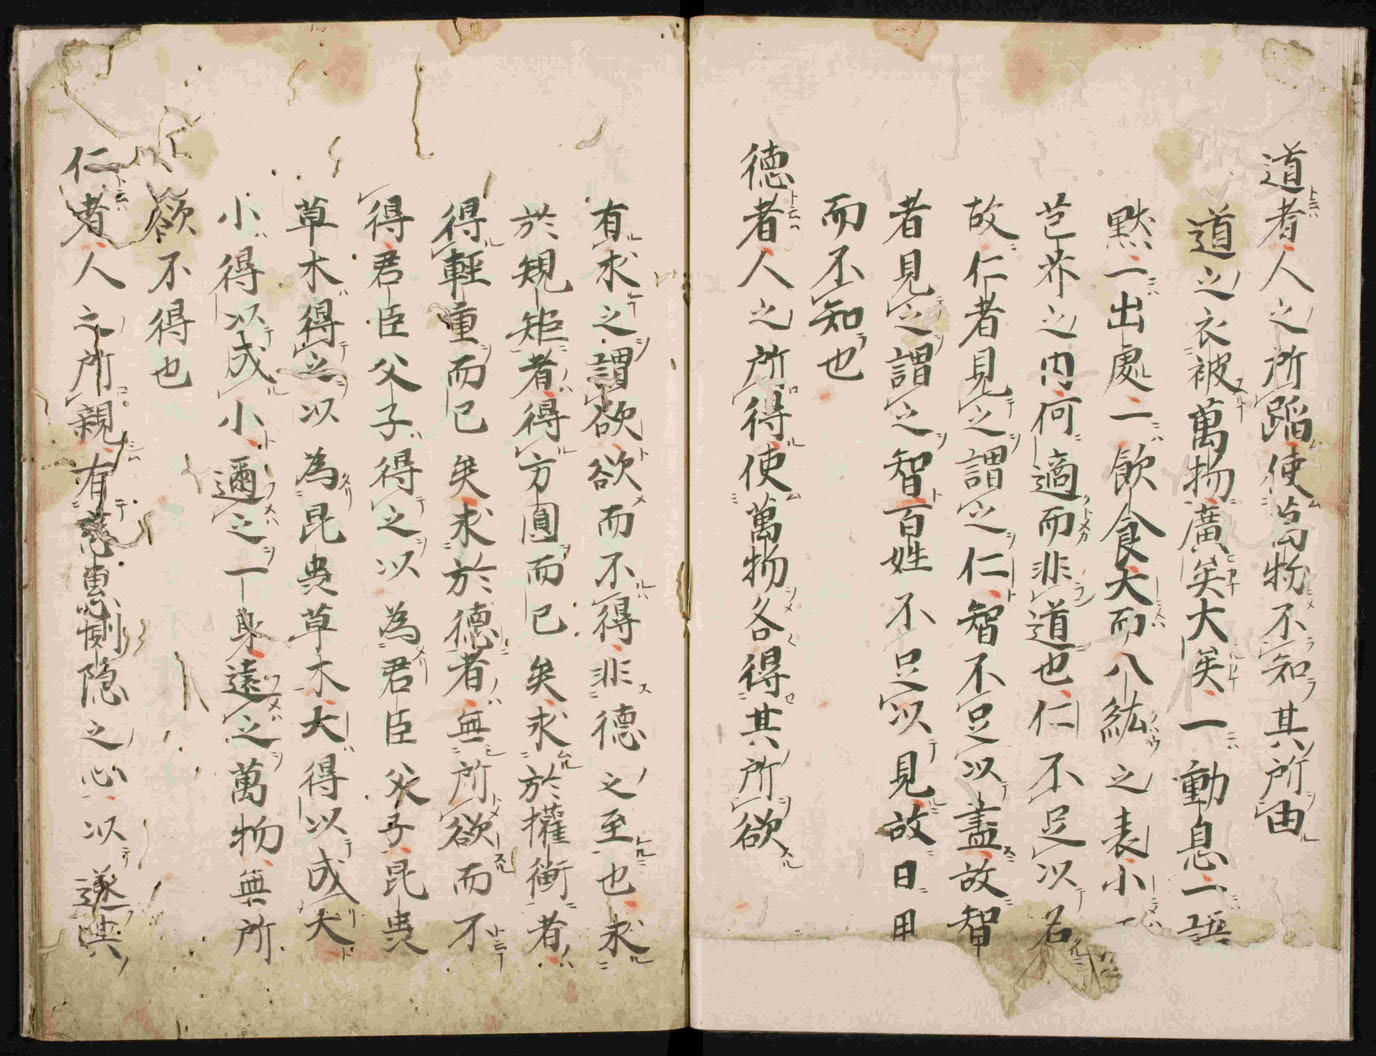 道者人之所蹈使萬物不知其所由
道之衣被萬物廣矣大矣一動息一語
默一出處一飲食大而八紘之表小一
芒芥之内何適而非道也仁不足以名
故仁者見之謂之仁智不足以盡故智
者見之謂之智百姓不足以見故日用
而不知也
德者人之所得使萬物各得其所欲
有求之謂欲欲而不得非德之至也求
於規矩者得方圓而已矣求於權衡者
得輕重而已矣求於德者無所欲而不
得君臣父子得之以為君臣父子昆蟲
草木得之以為昆蟲草木大得以成大
小得以成小邇之一身遠之萬物無所
欲不得也
仁者人之所親有慈惠惻隱之心以遂其